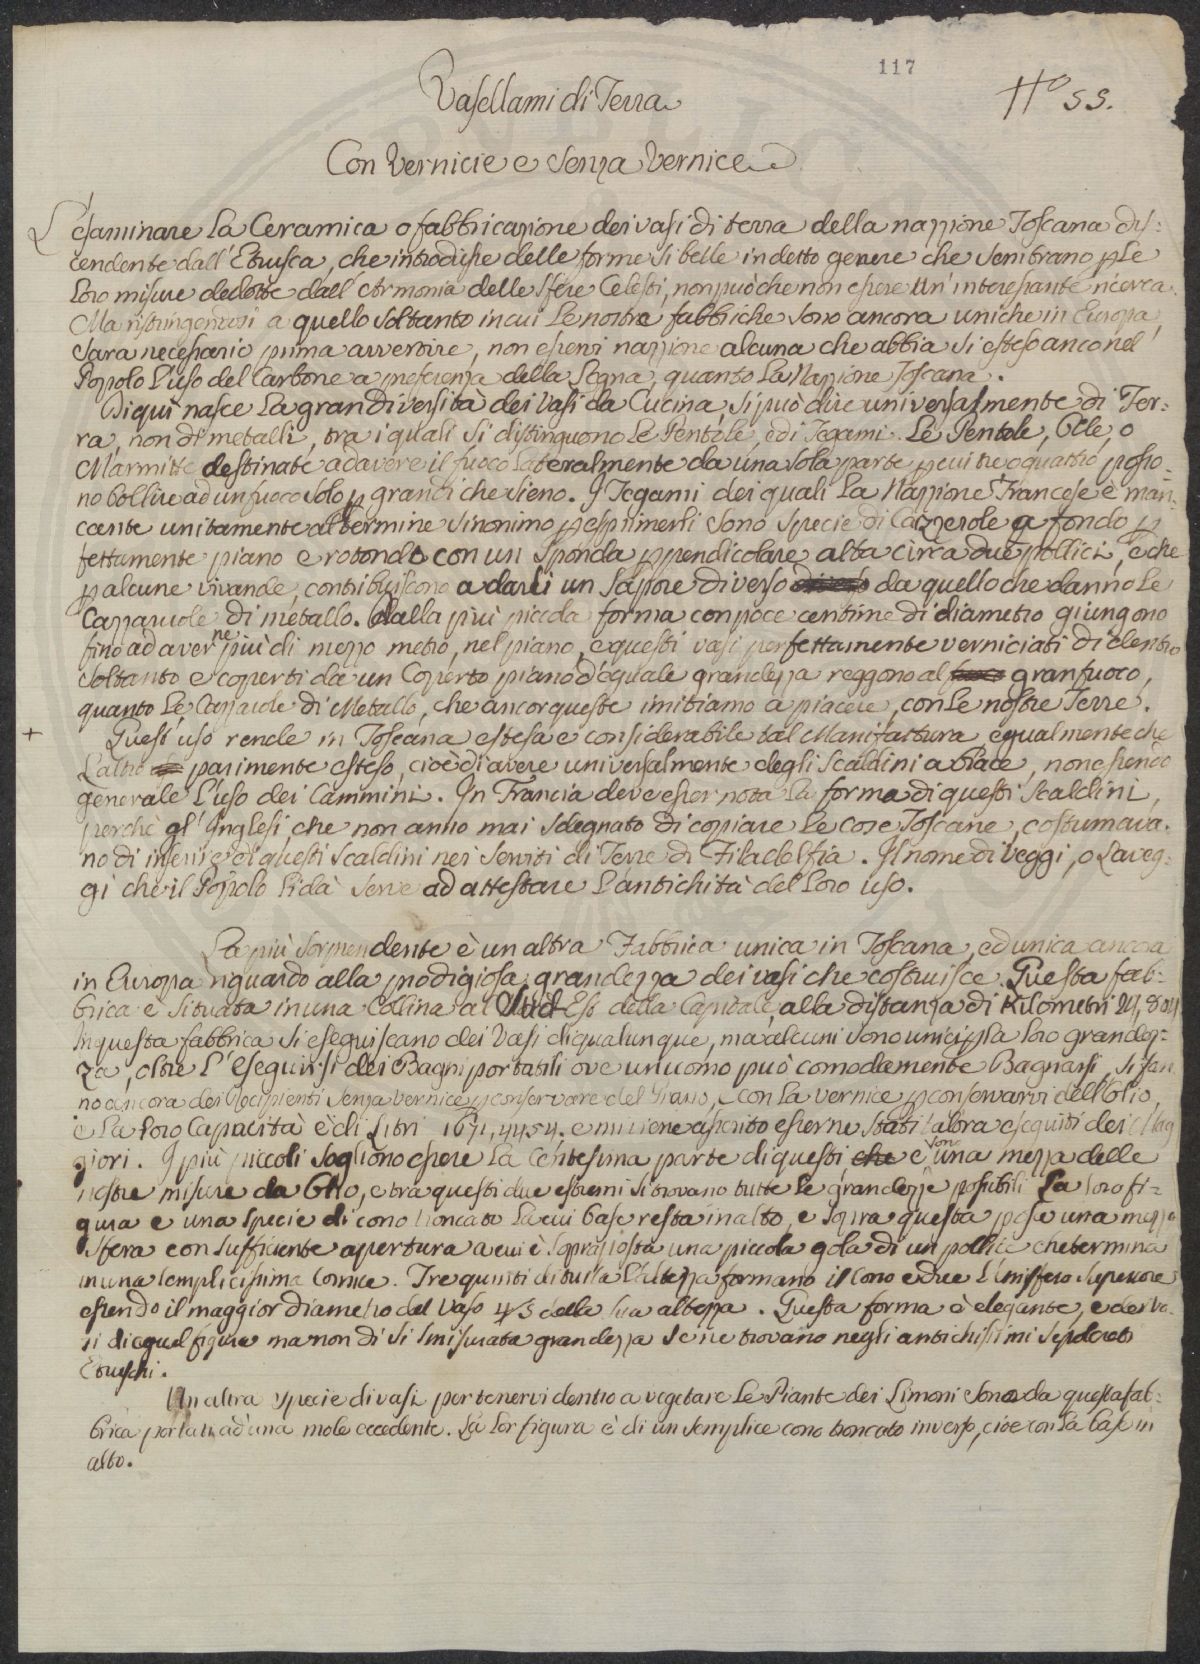 117
N.º 55.
Vasellami di Terra
Con Vernicie e senza Vernice
L'esaminare la Ceramica o fabbricazione dei vasi di terra della nazzione Toscana dis-
cendente dall'Etrusca, che introdusse delle forme sì belle in detto genere che sembrano p le
loro misure dedotte dall'Armonia delle Sfere Celesti, non può che non essere un'interessante ricerca.
Ma ristringendosi a quello soltanto in cui le nostre fabbriche sono ancora uniche in Europa,
sarà necessario prima avvertire, non esservi nazzione alcuna che abbia sì esteso anco nel
Popolo l'uso del Carbone a preferenza della Legna, quanto la Nazzione Toscana.
Di quì nasce la gran diversità dei Vasi da Cucina, si può dire universalmente di Ter-
ra, non di metalli, tra i quali si distinguono le Pentole, ed i Tegami. Le Pentole, Olle, o
Marmitte destinate ad avere il fuoco lateralmente da una sola parte p cui tre o quattro posso-
no bollire ad un fuoco solo p grandi che sieno. I Tegami dei quali la Nazzione Francese è man-
cante unitamente al termine sinonimo p esprimerli sono specie di Cazzerole a fondo p
fettamente piano e rotondo con un sponda ppendicolare alta circa due pollici, e che
p alcune vivande, contribuiscono a darli un sapore diverso da quello che danno le
Cazzaruole di metallo. Dalla più piccola forma con poce centime di diametro giungono
fino ad averne più di mezzo metro, nel piano, e questi vasi perfettamente verniciati di dentro
soltanto e coperti da un Coperto piano d'eguale grandezza reggono al gran fuoco,
quanto le Cazzarole di Metallo, che ancor queste imitiamo a piacere, con le nostre Terre.
+ Quest'uso rende in Toscana estesa e considerabile tal Manifattura egualmente che
l'altro parimente esteso, cioè di avere universalmente degli Scaldini a Brace, non essendo
generale l'uso dei Cammini. In Francia deve esser nota la forma di questi Scaldini,
perchè gl'Inglesi che non anno mai sdegnato di copiare le cose Toscane, costumava-
no di inserire di questi scaldini nei Serviti di Terre di Filadelfia. Il nome di Veggi, o Laveg-
gi che il Popolo li dà serve ad attestare l'antichità del loro uso.
La più sorprendente è un altra Fabbrica unica in Toscana, ed unica ancora
in Europa riguardo alla prodigiosa grandezza dei vasi che costruisce. Questa fab-
brica è situata in una Collina al Sud-Est della Capitale, alla distanza di Kilometri
In questa fabbrica si eseguiscano dei Vasi di qualunque, ma alcuni sono unici p la loro grandez-
za, oltre l'eseguirsi dei Bagni portatili ove un uomo può comodamente Bagnarsi, si fan-
no ancora dei Recipienti senza vernice p conservare del Grano, e con la vernice p conservarvi dell'Olio,
e la loro Capacità è di Litri 1671,4454. e mi viene asserito esserne stati talora eseguiti dei Mag
giori. I più piccoli sogliono essere la Centesima parte di questi e son una mezza delle
nostre misure da Olio, e tra questi due estremi si trovano tutte le grandezze possibili. La loro fi-
gura è una specie di cono troncato la cui base resta in alto, e sopra questa posa una mezza
sfera con sufficiente apertura a cui è soprapposta una piccola gola di un pollice che termina
in una semplicissima Cornice. Tre quinti di tutta l'altezza formano il Cono e due l'Emisfero superiore
essendo il maggior diametro del Vaso 4/5 della sua altezza. Questa forma è elegante, e dei va-
si di egual figura ma non di sì smisurata grandezza se ne trovano negli antichissimi Sepolcreti
Etruschi.
Un altra specie di vasi per tenervi dentro a vegetare le Piante dei Limoni sono da questa fab-
brica portati ad una mole eccedente. La lor figura è di un semplice cono troncato inverso, cioè con la base in
alto.